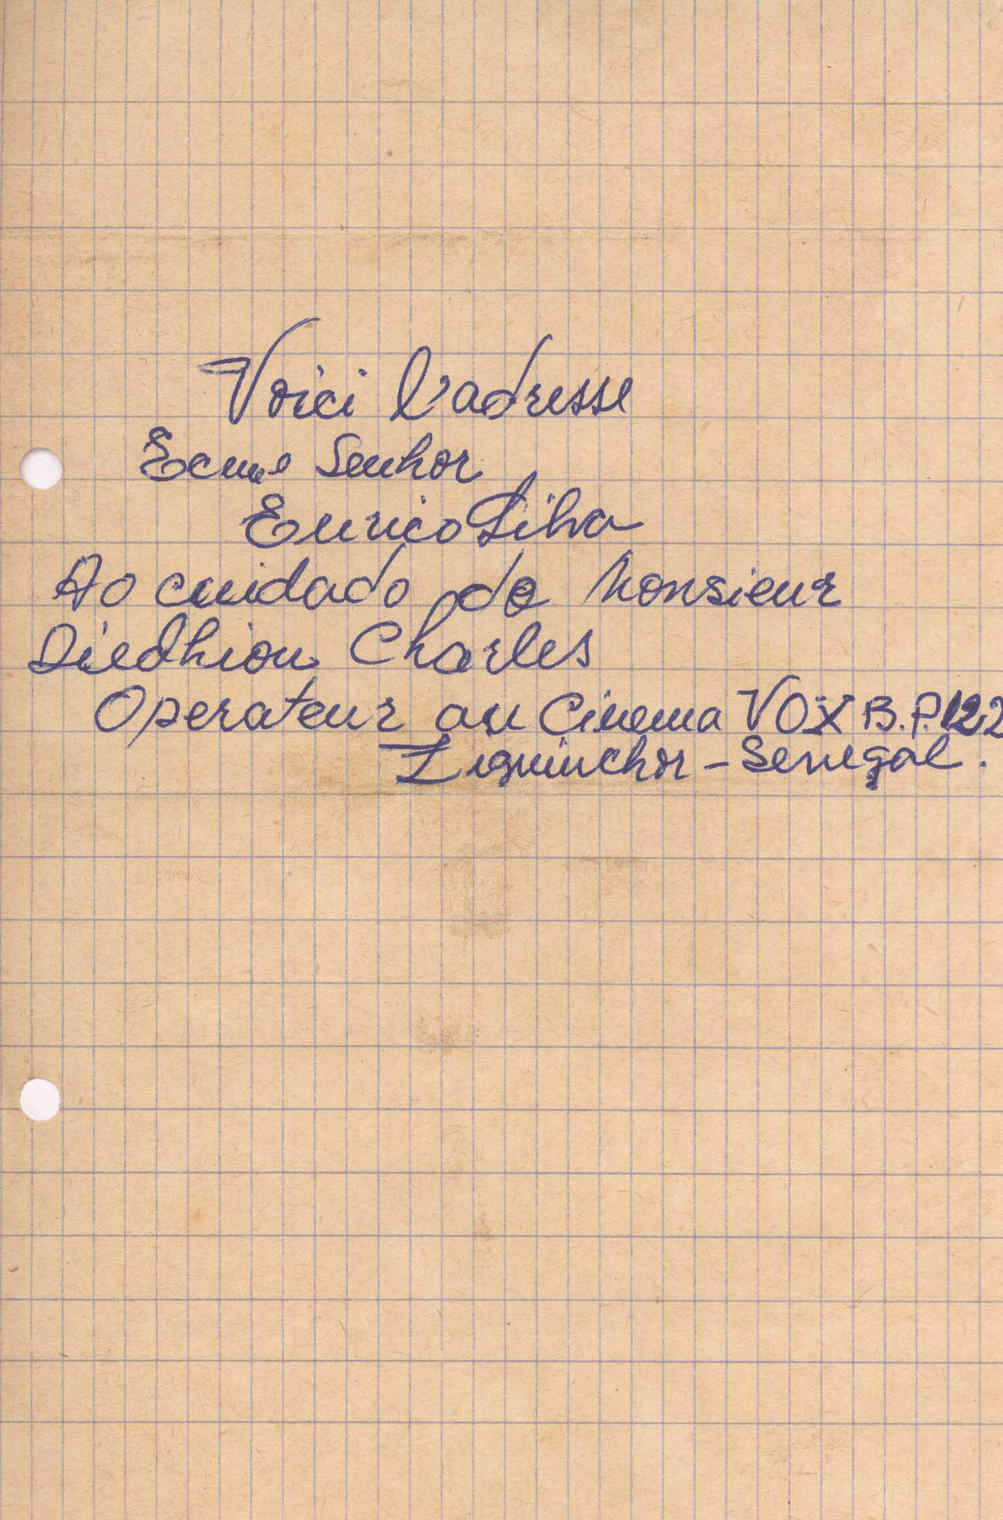 Voici l'adresse
Ecmo Senhor
Eurico Silva
Ao cuidado do Monsieur
Diedhiou Charles
Operateur au Cinema VOX B.P. 122
Ziguinchor - Senegal.